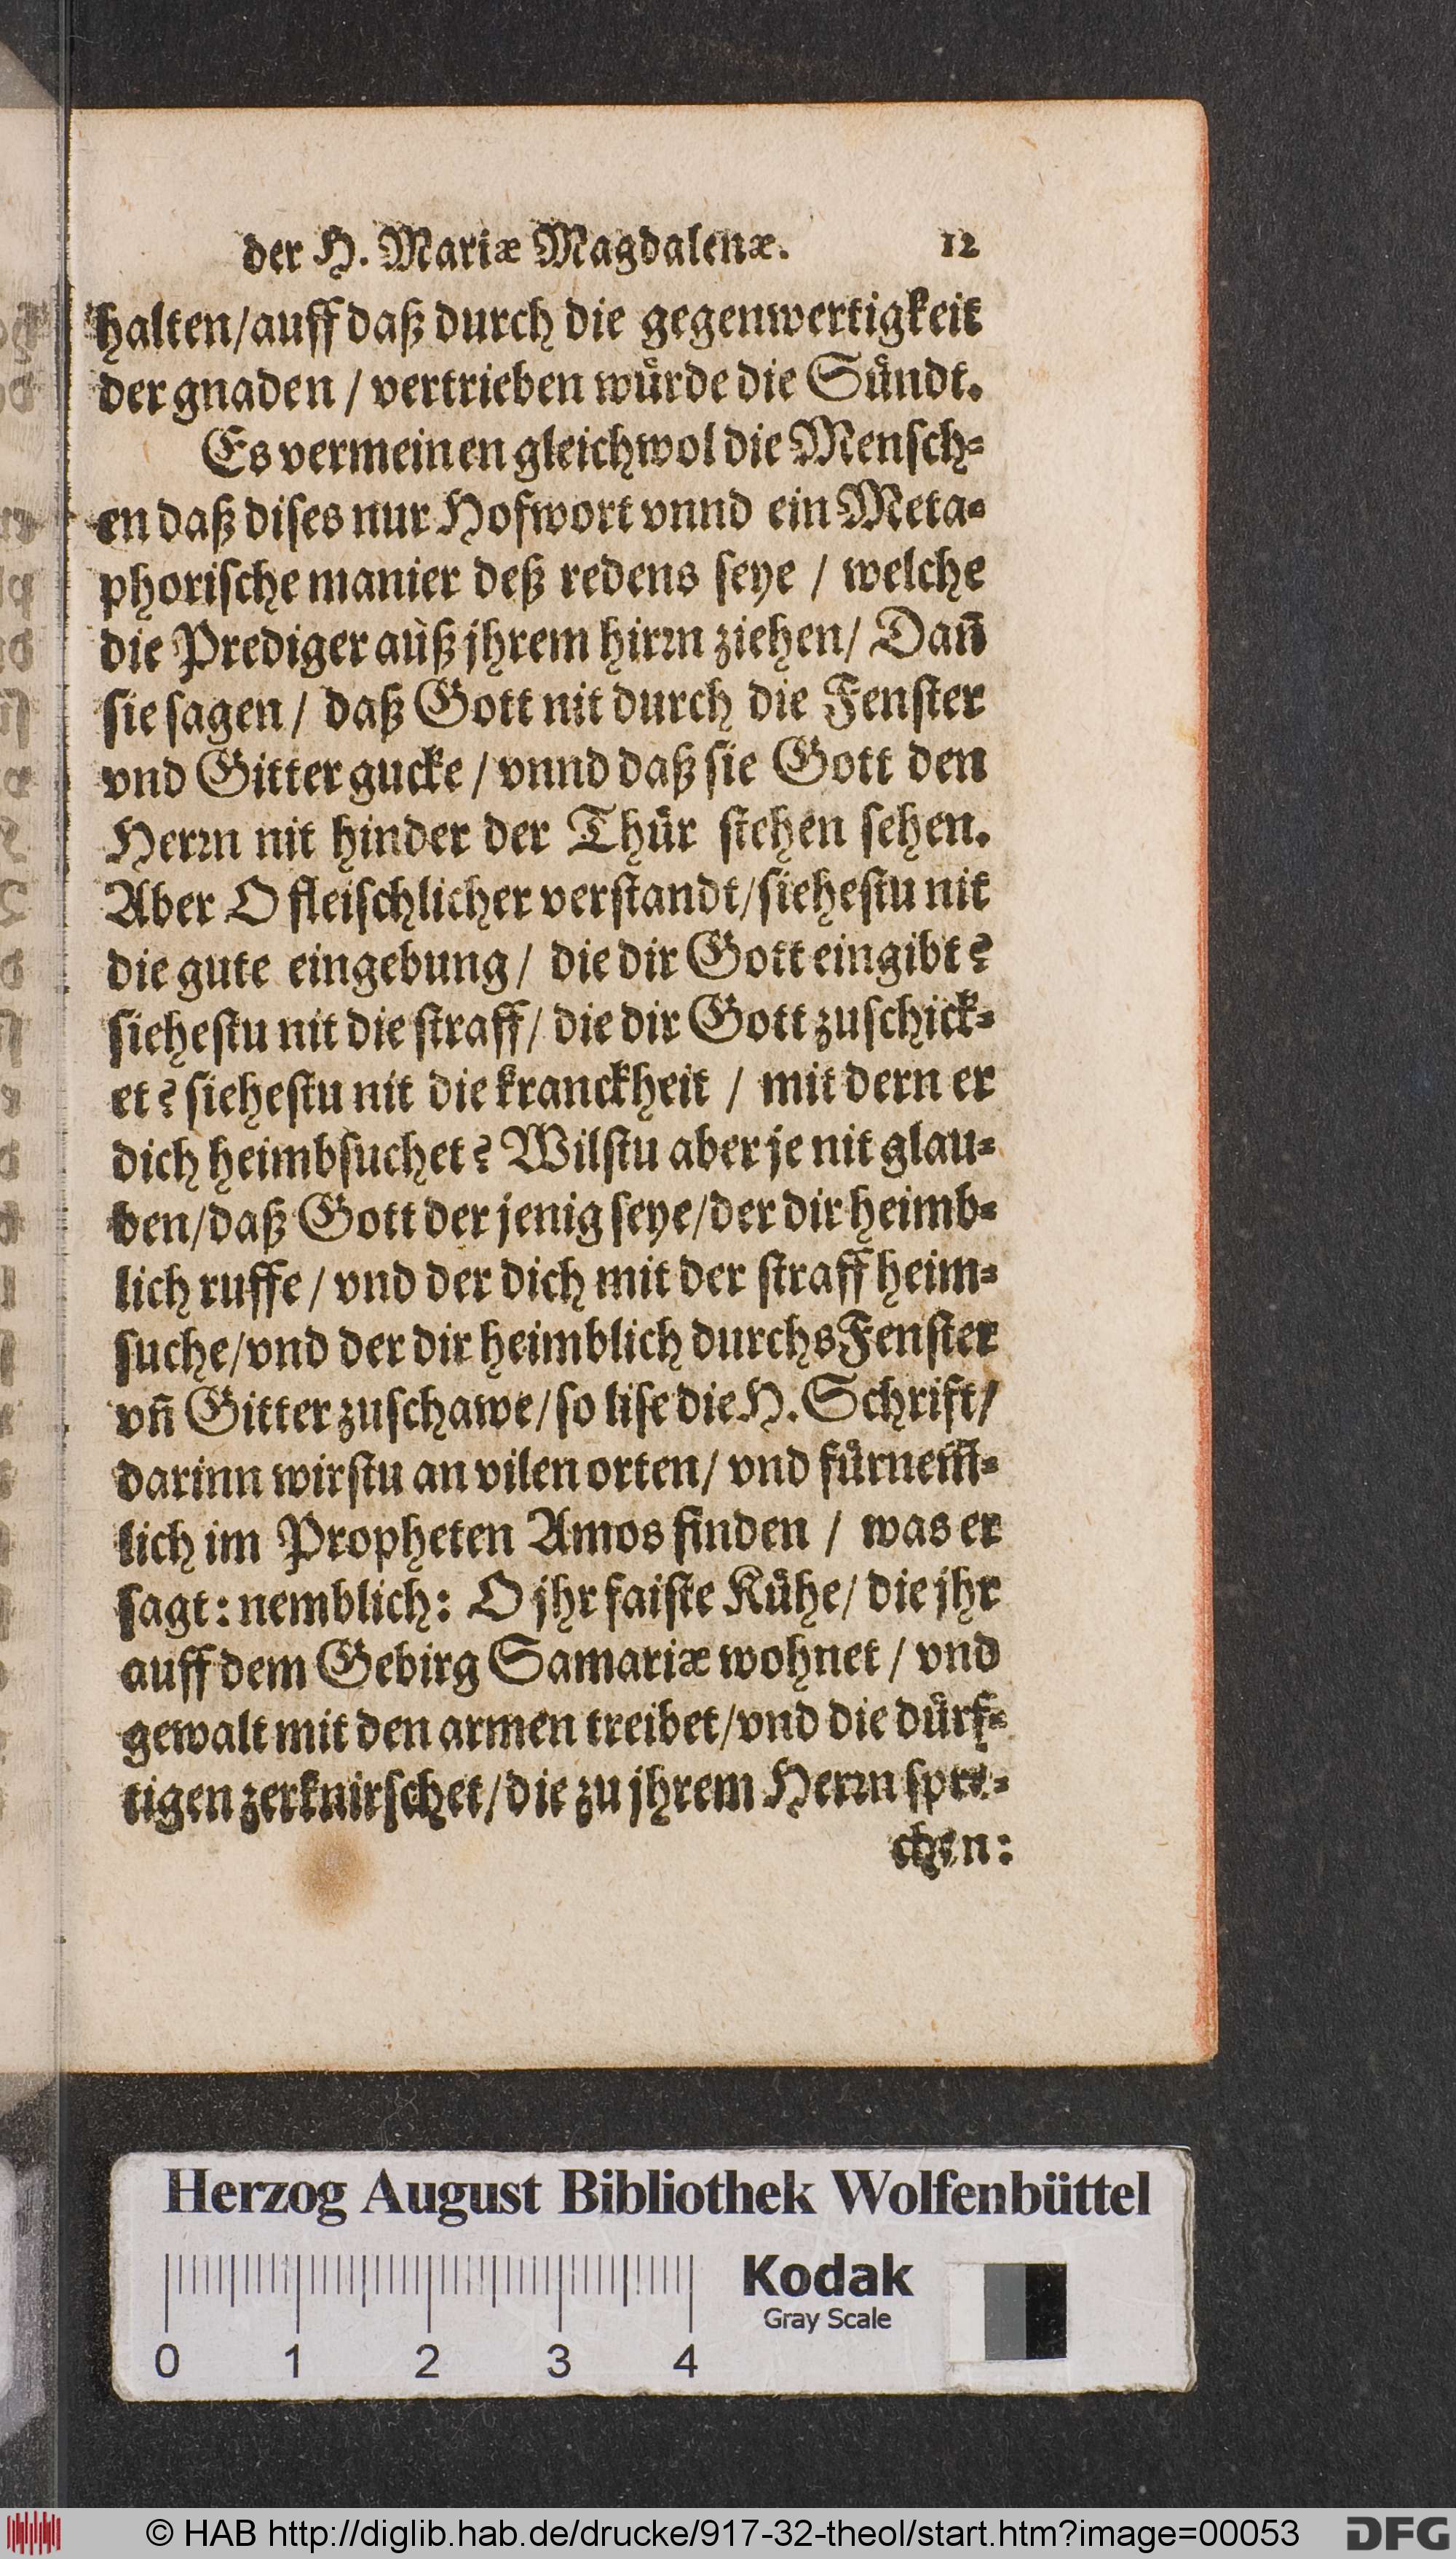 der H. Mariæ Magdalenæ. 12
halten/auff daß durch die gegenwertigkeit
der gnaden / vertrieben wuͤrde die Suͤndt.
Es vermeinen gleichwol die Mensch⸗
en daß dises nur Hofwort vnnd ein Meta⸗
phorische manier deß redens seye / welche
die Prediger auß jhrem hirꝛn ziehen/ Dañ
sie sagen / daß Gott nit durch die Fenster
vnd Gitter gucke / vnnd daß sie Gott den
Herꝛn nit hinder der Thuͤr stehen sehen.
Aber O fleischlicher verstandt/siehestu nit
die gute eingebung / die dir Gott eingibt?
siehestu nit die straff/ die dir Gott zuschick⸗
et? siehestu nit die kranckheit / mit dern er
dich heimbsuchet? Wilstu aber je nit glau⸗
ben/daß Gott der jenig seye/der dir heimb⸗
lich ruffe / vnd der dich mit der straff heim⸗
suche/vnd der dir heimblich durchs Fenster
vñ Gitter zuschawe/so lise die H. Schrift/
darinn wirstu an vilen orten/ vnd fuͤrnem̃⸗
lich im Propheten Amos finden / was er
sagt: nemblich: O jhr faiste Kuͤhe/ die jhr
auff dem Gebirg Samariæ wohnet / vnd
gewalt mit den armen treibet/vnd die duͤrf⸗
tigen zerknirschet/die zu jhrem Herꝛn spre⸗
chen:
Herzog August Bibliothek Wolfenbüttel
Kodak
Gray Scale
0 1 2 3 4
© HAB http://diglib.hab.de/drucke/917-32-theol/start.htm?image=00053
DFG